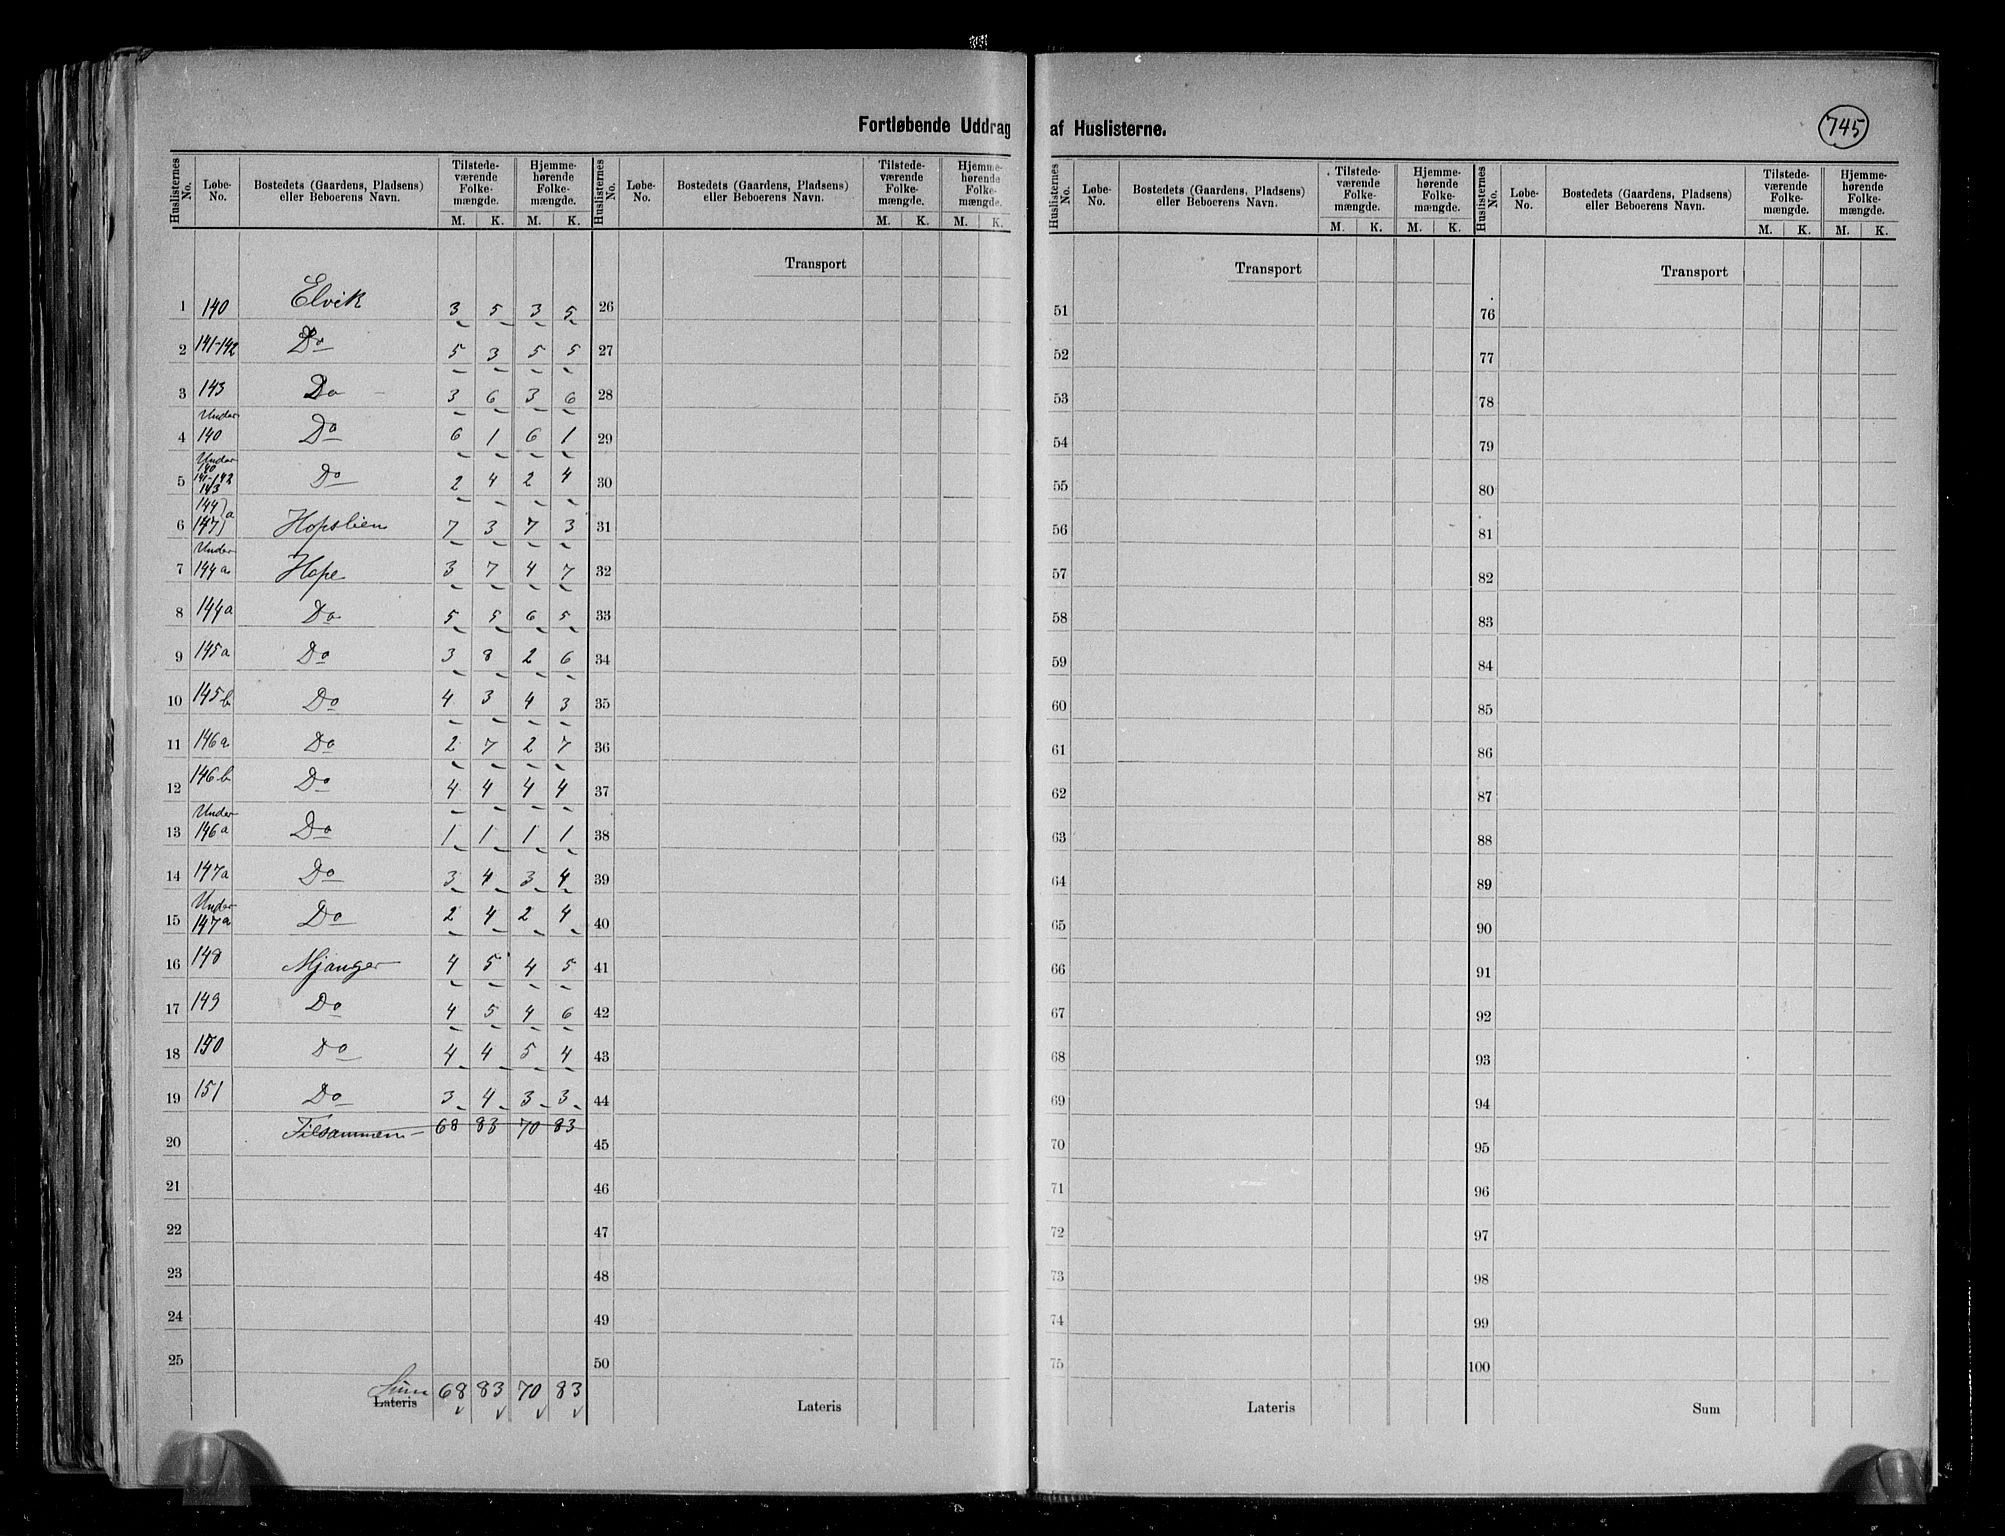 Fortløbende Uddrag af Huslisterne.
745
Huslisternes No. Løbe-No. Bostedets (Gaardens, Pladsens) eller Beboerens Navn. Tilstedeværende Folkemængde. M. K. Hjemmehørende Folkemængde. M. K.
1 140 Elvik 3 5 3 5
2 141-142 Do 5 3 5 5
3 143 Do 3 6 3 6
4 Under 140 Do 6 1 6 1
5 Under 140 141-142 143 Do 2 4 2 4
6 144 147 } a Hopslien 7 3 7 3
7 Under 144a Hope 3 7 4 7
8 144a Do 5 5 6 5
9 145a Do 3 8 2 6
10 145b Do 4 3 4 3
11 146a Do 2 7 2 7
12 146b Do 4 4 4 4
13 Under 146a Do 1 1 1 1
14 147a Do 3 4 3 4
15 Under 147a Do 2 4 2 4
16 148 Mjanger 4 5 4 5
17 149 Do 4 5 4 6
18 150 Do 4 4 5 4
19 151 Do 3 4 3 3
20 Tilsammen 68 83 70 83
21
22
23
24
25
Sum 68 83 70 83
Lateris
Huslisternes No. Løbe-No. Bostedets (Gaardens, Pladsens) eller Beboerens Navn. Tilstedeværende Folkemængde. M. K. Hjemmehørende Folkemængde. M. K.
Transport
26
27
28
29
30
31
32
33
34
35
36
37
38
39
40
41
42
43
44
45
46
47
48
49
50
Lateris
Huslisternes No. Løbe-No. Bostedets (Gaardens, Pladsens) eller Beboerens Navn. Tilstedeværende Folkemængde. M. K. Hjemmehørende Folkemængde. M. K.
Transport
51
52
53
54
55
56
57
58
59
60
61
62
63
64
65
66
67
68
69
70
71
72
73
74
75
Lateris
Huslisternes No. Løbe-No. Bostedets (Gaardens, Pladsens) eller Beboerens Navn. Tilstedeværende Folkemængde. M. K. Hjemmehørende Folkemængde. M. K.
Transport
76
77
78
79
80
81
82
83
84
85
86
87
88
89
90
91
92
93
94
95
96
97
98
99
100
Sum